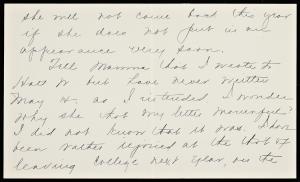 she will not come back this year
if she does not put in an
appearance very soon.
Tell Mamma that I wrote to
Hatt W but have never written
May H, as I intended. I wonder
Why she thot my letter mournful?
I did not know that it was. I have
been rather rejoiced at the thot of
leaving college next year, or the